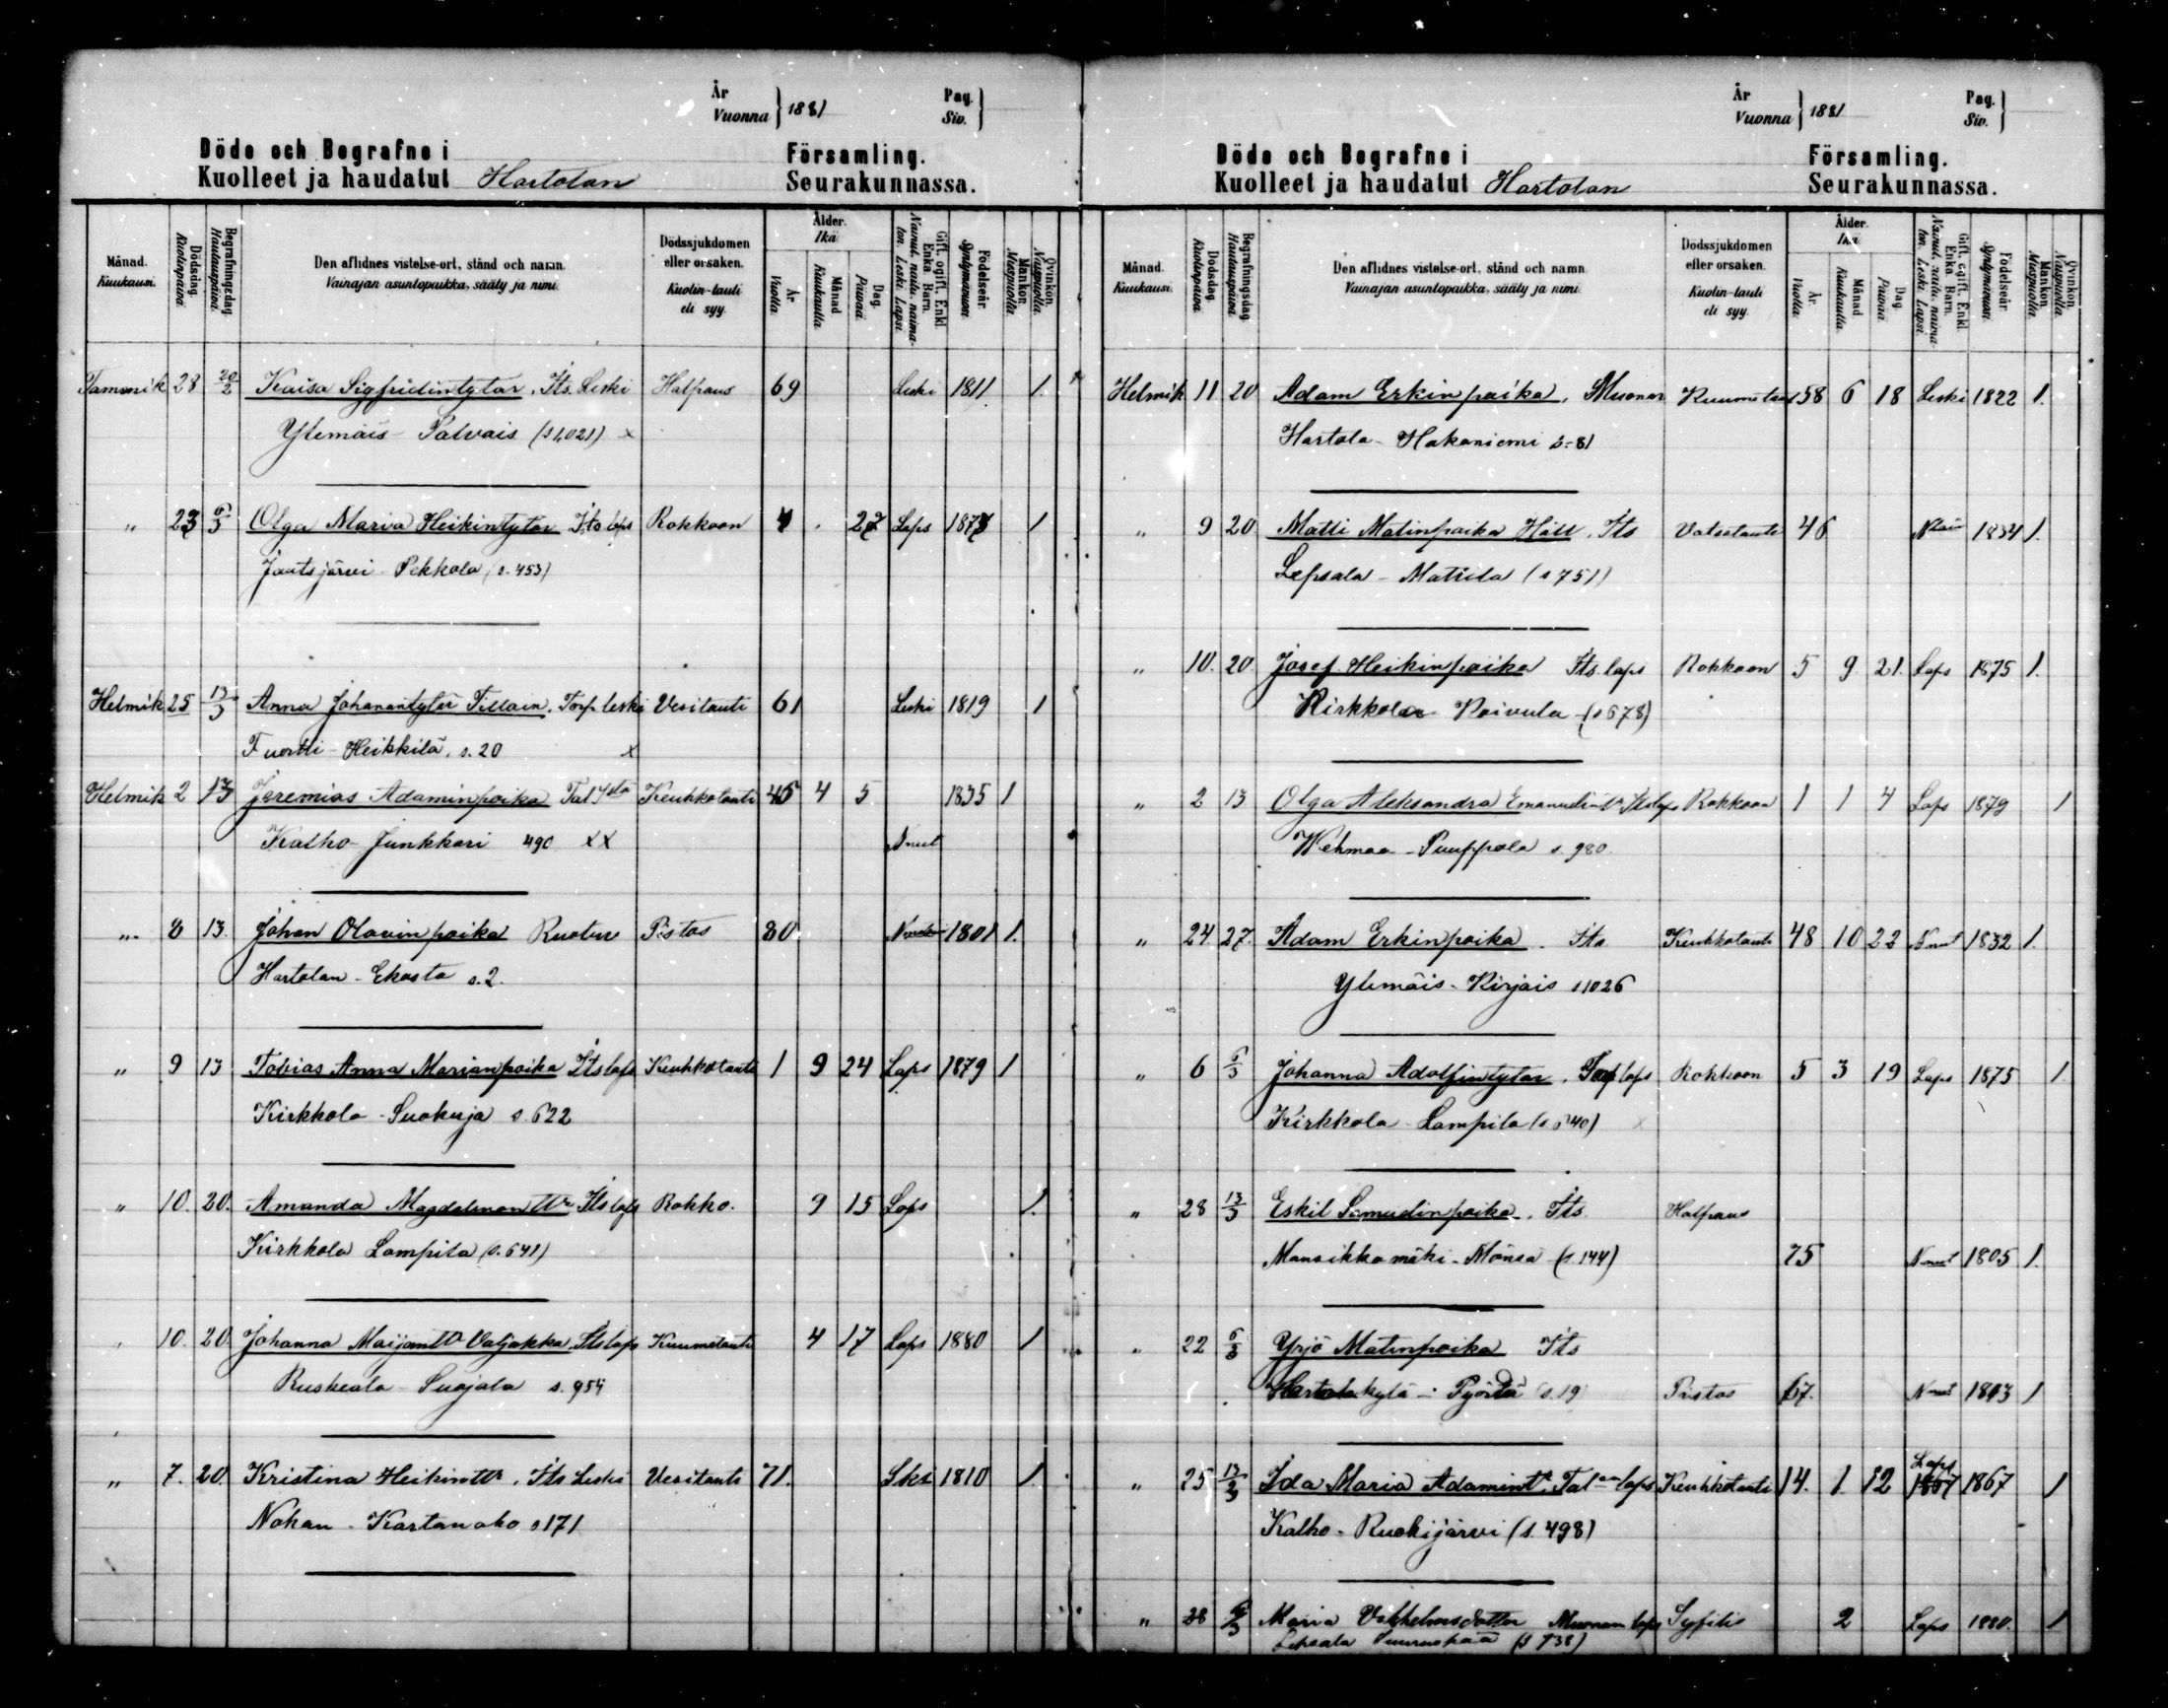 År
Vuonna } 1881
Pag.
Siv. }
Döde och Begrafne i
Kuolleet ja haudatut Hartolan
Församling.
Seurakunnassa.
Månad. Kuukausi.
Dödsdag. Kuolinpäivä.
Begrafningsdag. Hautauspäivä.
Den aflidnes vistelse-ort, stånd och namn.
Vainajan asuntopaikka, sääty ja nimi.
Dödssjukdomen eller orsaken.
Kuolin-tauti eli syy.
Ålder. Ikä.
År. Vuotta.
Månad. Kuukautta.
Dag. Päivää.
Gift, ogift, Enkl. Enka. Barn.
Nainut, naitu, naimaton. Leski. Lapsi.
Födelseår. Syntymävuosi.
Mankön. Miespuolia.
Qvinkön. Naispuolia.
Tammik 28 20/2 Kaisa Sigfridintytar, Its. Leski Halpaus 69 Leski 1811 1.
Ylemäis - Palvais (s 1,021) x
" 23 6/3 Olga Maria Heikintytar Its laps Rokkoon 4 27 Laps 1877 1
Jautsjärvi - Pekkola (s. 453)
Helmik 25 13/3 Anna Johanantytär Tillain, Torp leski Vesitauti 61 Leski 1819 1
Tuortti - Heikkilä, s. 20 x
Helmik 2 13 Jeremias Adaminpoika Tal Keuhkotauti 45 4 5 1835 1
Kalho - Junkkari 490 xx Nnut
" 8 13. Johan Olavinpoika Ruotuv Pistos 80 1801 1.
Hartolan - Ekosta s. 2.
" 9 13 Tobias Anna Marianpoika Its laps Keuhkotauti 1 9 24 Laps 1879 1
Kirkkola - Suokuja s. 622
" 10. 20. Amanda Magdalenan ttr Its laps Rokko. 9 15 Laps 1.
Kirkkola Lampila (s. 641)
10. 20. Johanna Maijantt Valjakka Its laps Kuumetauti 4 17 Laps 1880 1
Ruskeala - Suojala s. 954
" 7. 20. Kristina Heikintr, Its Leski Vesitauti 71. Lski 1810 1.
Nokan - Kartanoho s 171
År
Vuonna } 1881
Pag.
Siv. }
Döde och Begrafne i
Kuolleet ja haudatut Hartolan
Församling.
Seurakunnassa.
Månad. Kuukausi.
Dödsdag. Kuolinpäivä.
Begrafningsdag. Hautauspäivä.
Den aflidnes vistelse-ort, stånd och namn.
Vainajan asuntopaikka, sääty ja nimi.
Dödssjukdomen eller orsaken.
Kuolin-tauti eli syy.
Ålder. Ikä.
År. Vuotta.
Månad. Kuukautta.
Dag. Päivää.
Gift, ogift, Enkl. Enka. Barn.
Nainut, naitu, naimaton. Leski. Lapsi.
Födelseår. Syntymävuosi.
Mankön. Miespuolia.
Qvinkön. Naispuolia.
Helmik 11 20 Adam Erkinpoika, Muonar Kuumetaut 58 6 18 Leski 1822 1.
Hartola - Hakaniemi s. 81
" 9 20 Matti Matinpoika Häll, Its Vatsatauti 46 1834 1.
Lepsala - Matida (s 751)
" 10. 20. Josef Heikinpoika Its. laps Rokkoon 5 9 21. Laps 1875 1.
Kirkkola - Koivula (s 678)
" 2 13 Olga Aleksandra Emanuelintr Its laps Rokkoon 1 1 4 Laps 1879 1
Wehmaa - Puuppola s. 980
" 24 27. Adam Erkinpoika. Its Keuhkotauti 48 10 22 Nnut 1832 1.
Ylemäis - Kirjais s 1026
" 6 6/3 Johanna Adolfintytar, Torp laps Rokkoon 5 3 19 Laps 1875 1.
Kirkkola - Lampila (s. 640) x
" 28 13/3 Eskil Samuelinpoika, Its. Halpaus
Mansikkamäki - Mönsä (s. 144) 75 Nnut 1805 1.
" 22 6/3 Yrjö Matinpoika Its
Hartolakylä - Pyörlä (s. 19) Pistos 67. Nnut 1813 1
" 25 13/3 Ida Maria Adamintr. Tal laps Keuhkotauti 14. 1. 12 Laps 1867 1
Kalho - Ruokijärvi (s. 498)
" 28 6/3 Maria Vilhelmsdotter Muonam laps Syfilis 2 Laps 1880. 1
Lepsala Suuruspää (s 738)